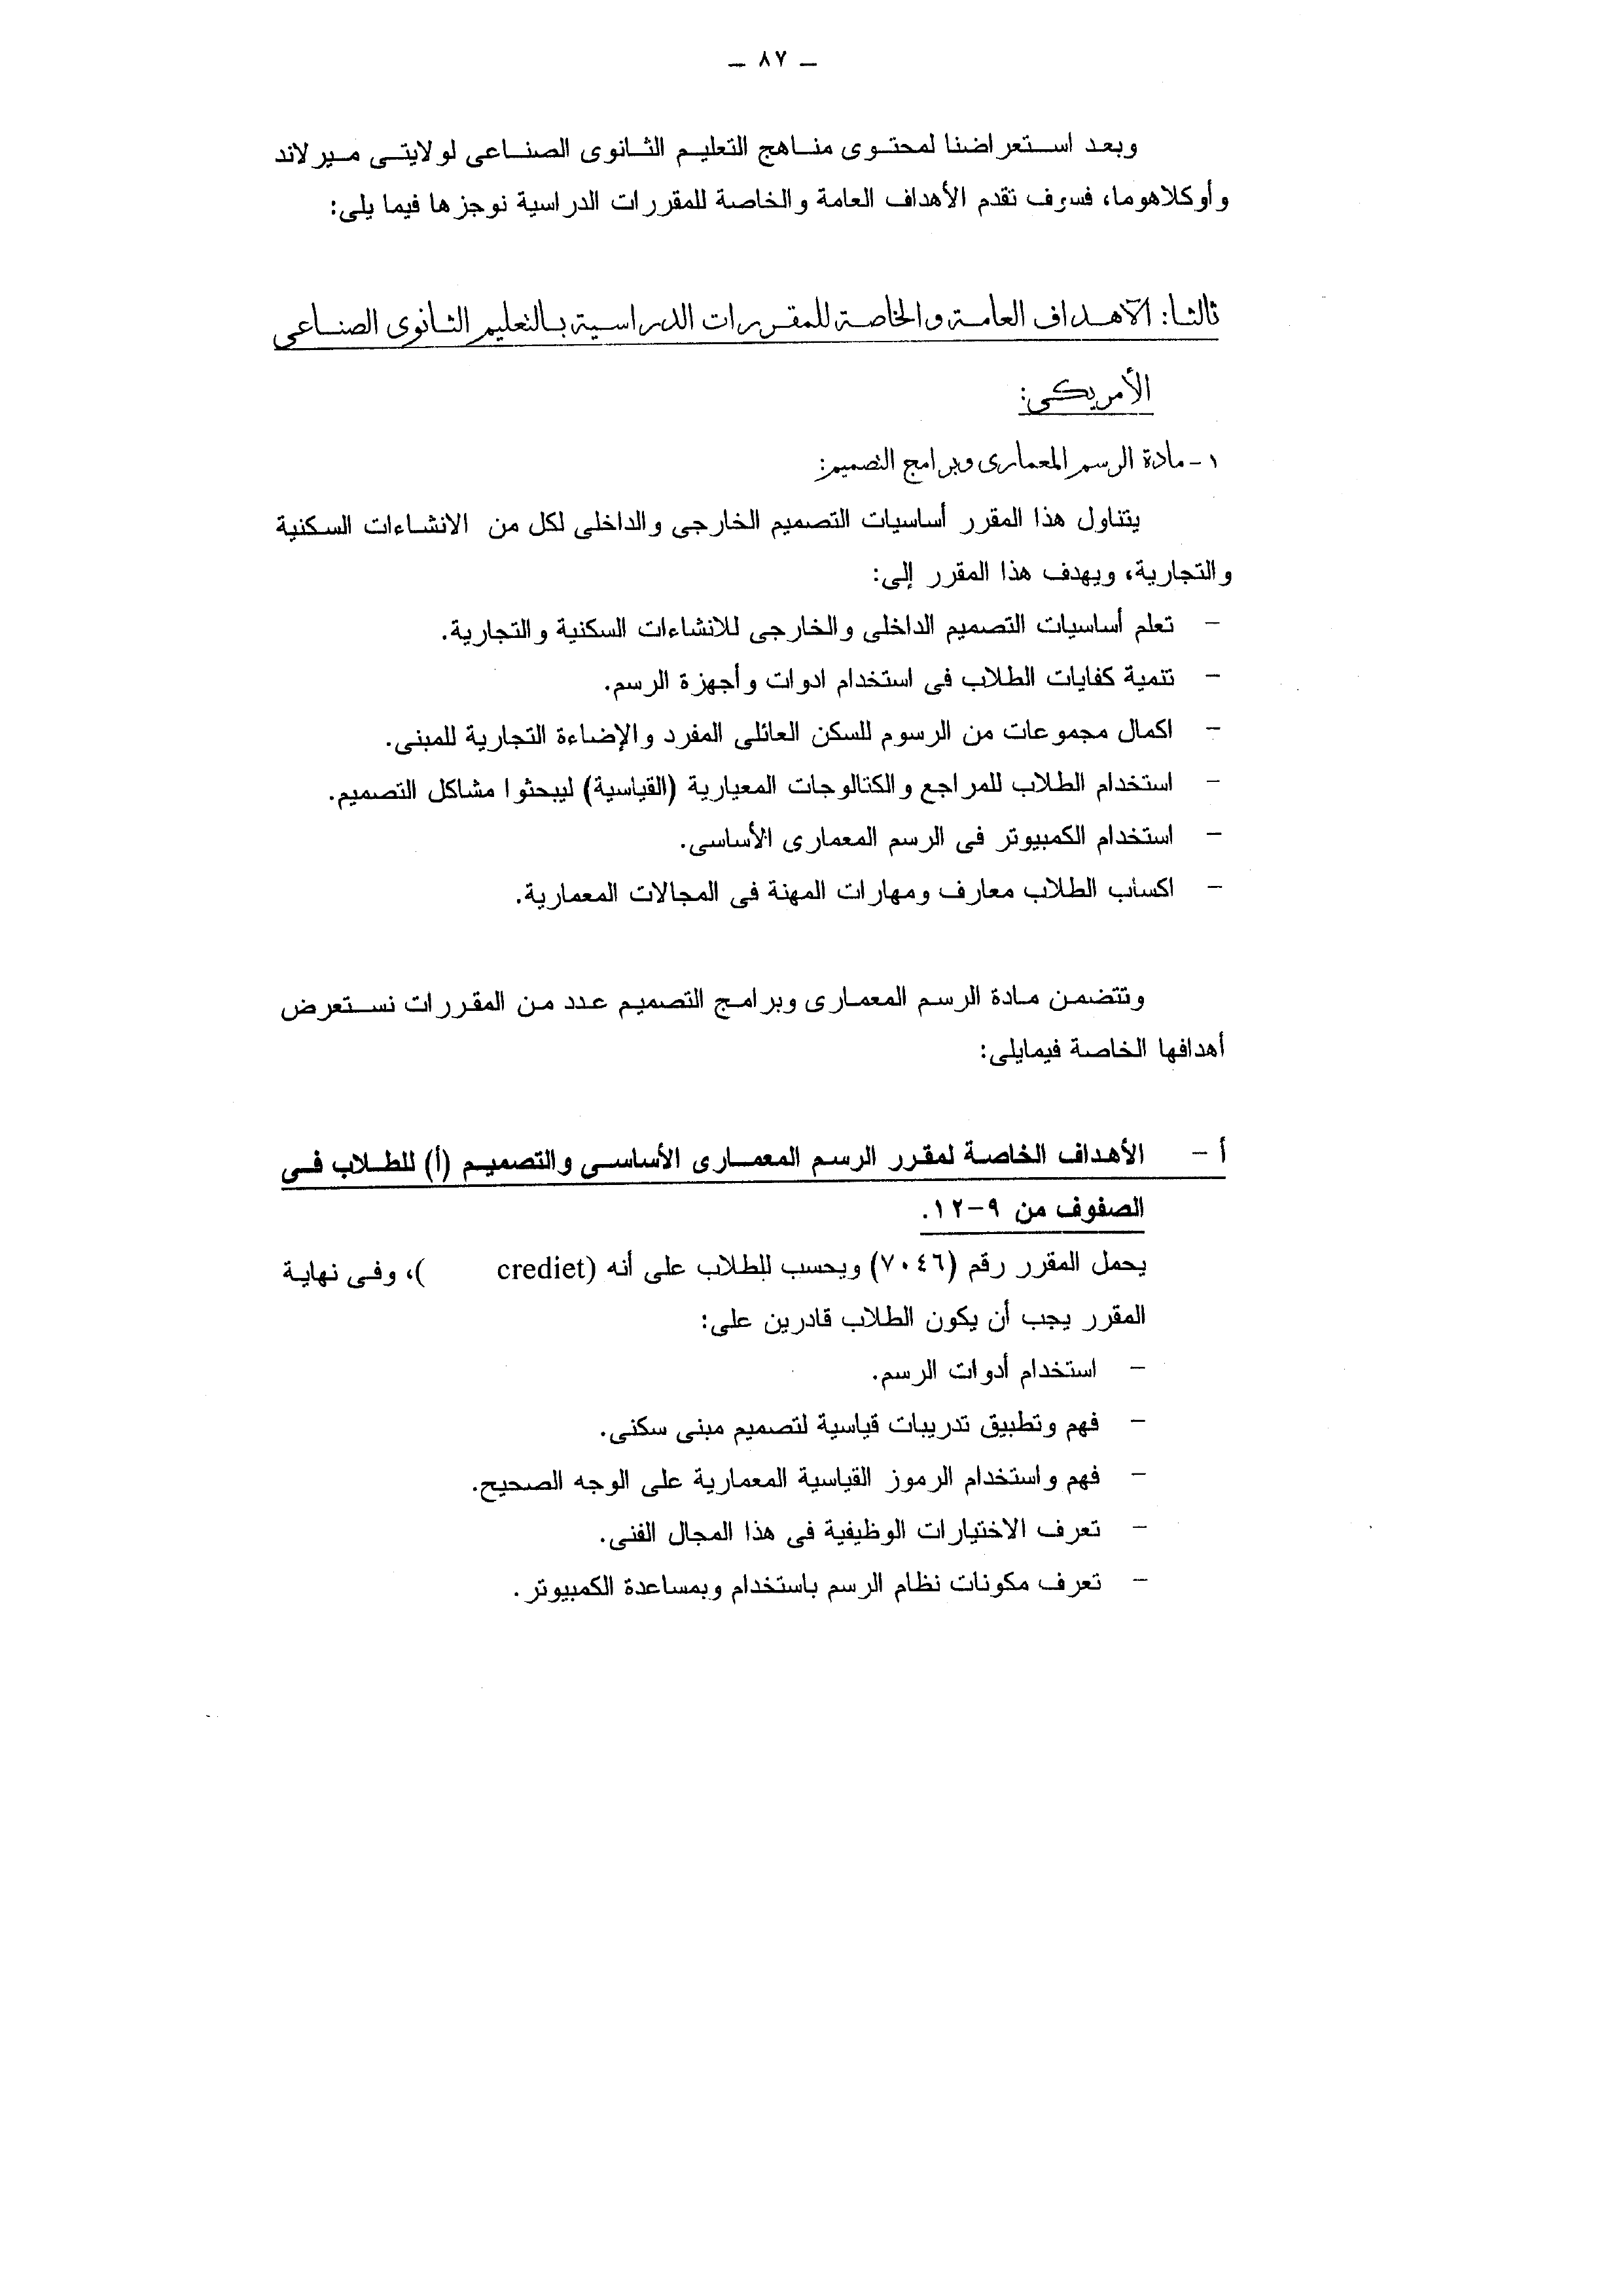 – ٨٧ –
وبعد استعراضنا لمحتوى مناهج التعليم الثانوى الصناعى لولايتى ميرلاند
وأوكلاهوما، فسوف نقدم الأهداف العامة والخاصة للمقررات الدراسية نوجزها فيما يلى:
ثالثا: الأهداف العامة والخاصة للمقررات الدراسية بالتعليم الثانوى الصناعى
الأمريكى:
١- مادة الرسم المعمارى وبرامج التصميم:
يتناول هذا المقرر أساسيات التصميم الخارجى والداخلى لكل من الانشاءات السكنية
والتجارية، ويهدف هذا المقرر إلى:
– تعلم أساسيات التصميم الداخلى والخارجى للانشاءات السكنية والتجارية.
– تنمية كفايات الطلاب فى استخدام ادوات وأجهزة الرسم.
– اكمال مجموعات من الرسوم للسكن العائلى المفرد والإضاءة التجارية للمبنى.
– استخدام الطلاب للمراجع والكتالوجات المعيارية (القياسية) ليبحثوا مشاكل التصميم.
– استخدام الكمبيوتر فى الرسم المعمارى الأساسى.
– اكساب الطلاب معارف ومهارات المهنة فى المجالات المعمارية.
وتتضمن مادة الرسم المعمارى وبرامج التصميم عدد من المقررات نستعرض
أهدافها الخاصة فيمايلى:
أ – الأهداف الخاصة لمقرر الرسم المعمارى الأساسى والتصميم (أ) للطلاب فى
الصفوف من ٩-١٢.
يحمل المقرر رقم (٧٠٤٦) ويحسب للطلاب على أنه (crediet )، وفى نهاية
المقرر يجب أن يكون الطلاب قادرين على:
– استخدام أدوات الرسم.
– فهم وتطبيق تدريبات قياسية لتصميم مبنى سكنى.
– فهم واستخدام الرموز القياسية المعمارية على الوجه الصحيح.
– تعرف الاختيارات الوظيفية فى هذا المجال الفنى.
– تعرف مكونات نظام الرسم باستخدام وبمساعدة الكمبيوتر.